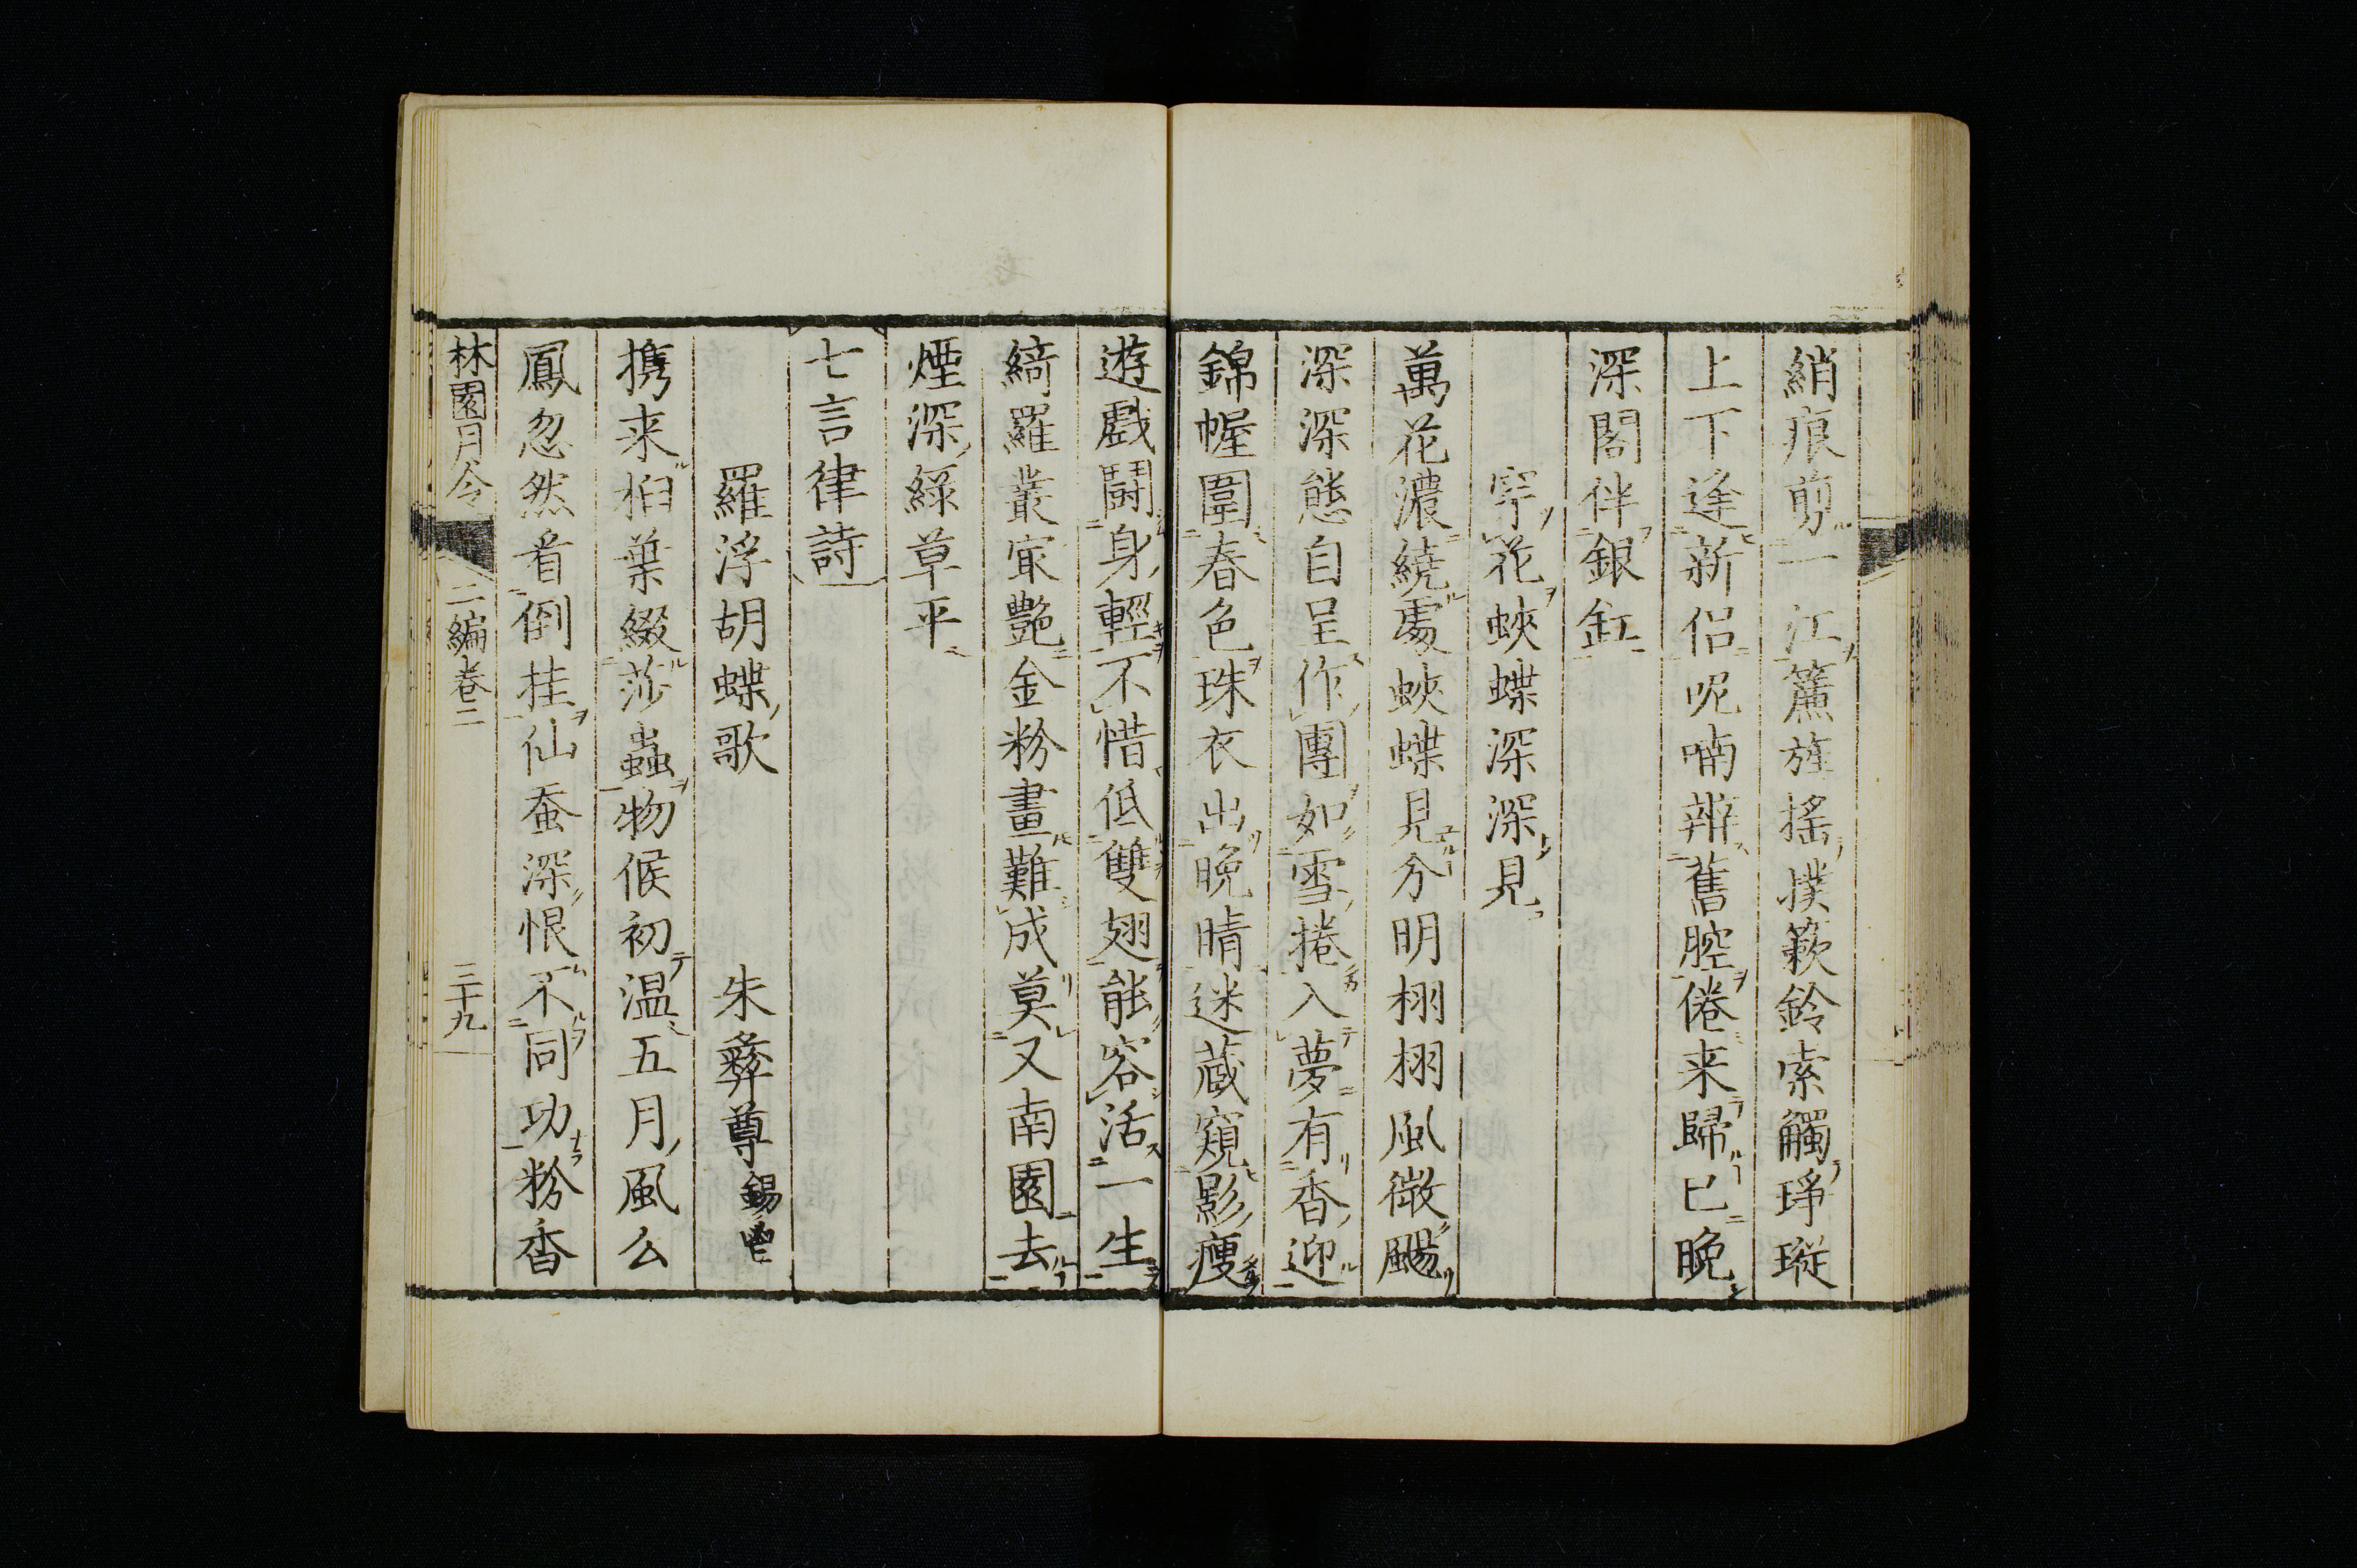 綃痕剪一江簾旌搖撲簌鈴索觸琤瑽
上下逢新侶呢喃辨舊腔倦来歸已晩
深閣伴銀缸
穿花蛺蝶深深見
萬花濃繞處蛺蝶見分明栩栩風微颺
深深態自呈作團如雪捲入夢有香迎
錦幄圍春色珠衣出晩晴迷蔵窺影瘦
遊戲鬪身輕不惜低雙翅能容活一生
綺羅叢㝡艶金粉畫難成莫又南園去
煙深緑草平
七言律詩
羅浮胡蝶歌　朱彝尊錫鬯
携来桕葉綴莎蟲物候初温五月風么
鳳忽然看倒挂仙蚕深恨不同功粉香
林園月令　二編卷二　三十九